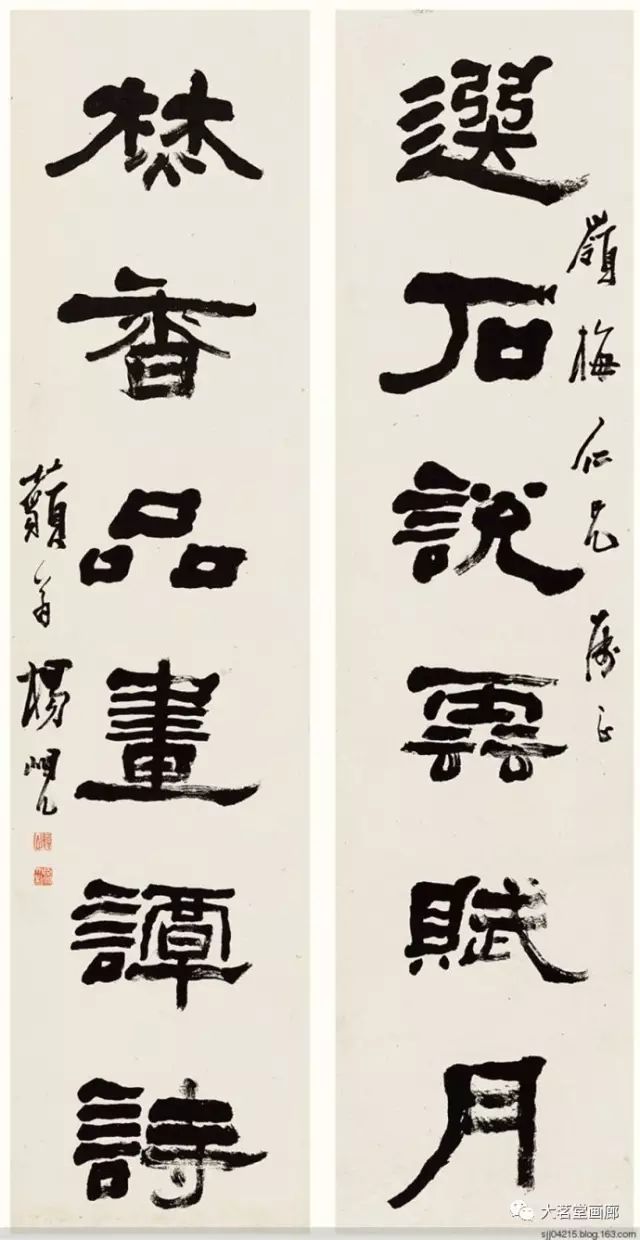 嶺梅仁兄屬正
選石說雲賦月
焚香品畫譚詩
藐翁楊峴
大茗堂画廊
sjj04215.blog.163.com